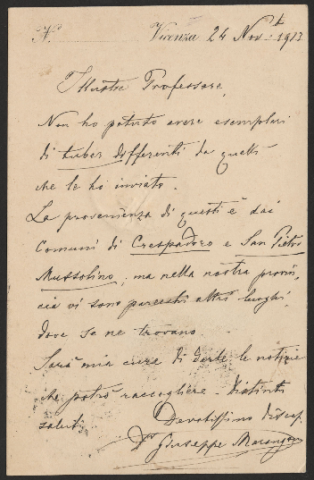 N. Vicenza 24 Nov. 1913
Illustre Professore,
Non ho potuto avere esemplari
di tuber differenti da quelli
che le ho inviato.
La provenienza di questi è dai
Comuni di Crespadoro e San Pietro
Mussolino, ma nella nostra provin,
cia vi sono parecchi altri luoghi
dove se ne trovano.
Sarà mia cura di darle le notizie
che potrò raccogliere. Distinti
saluti.
Devotissimo
Dr Giuseppe Marangoni